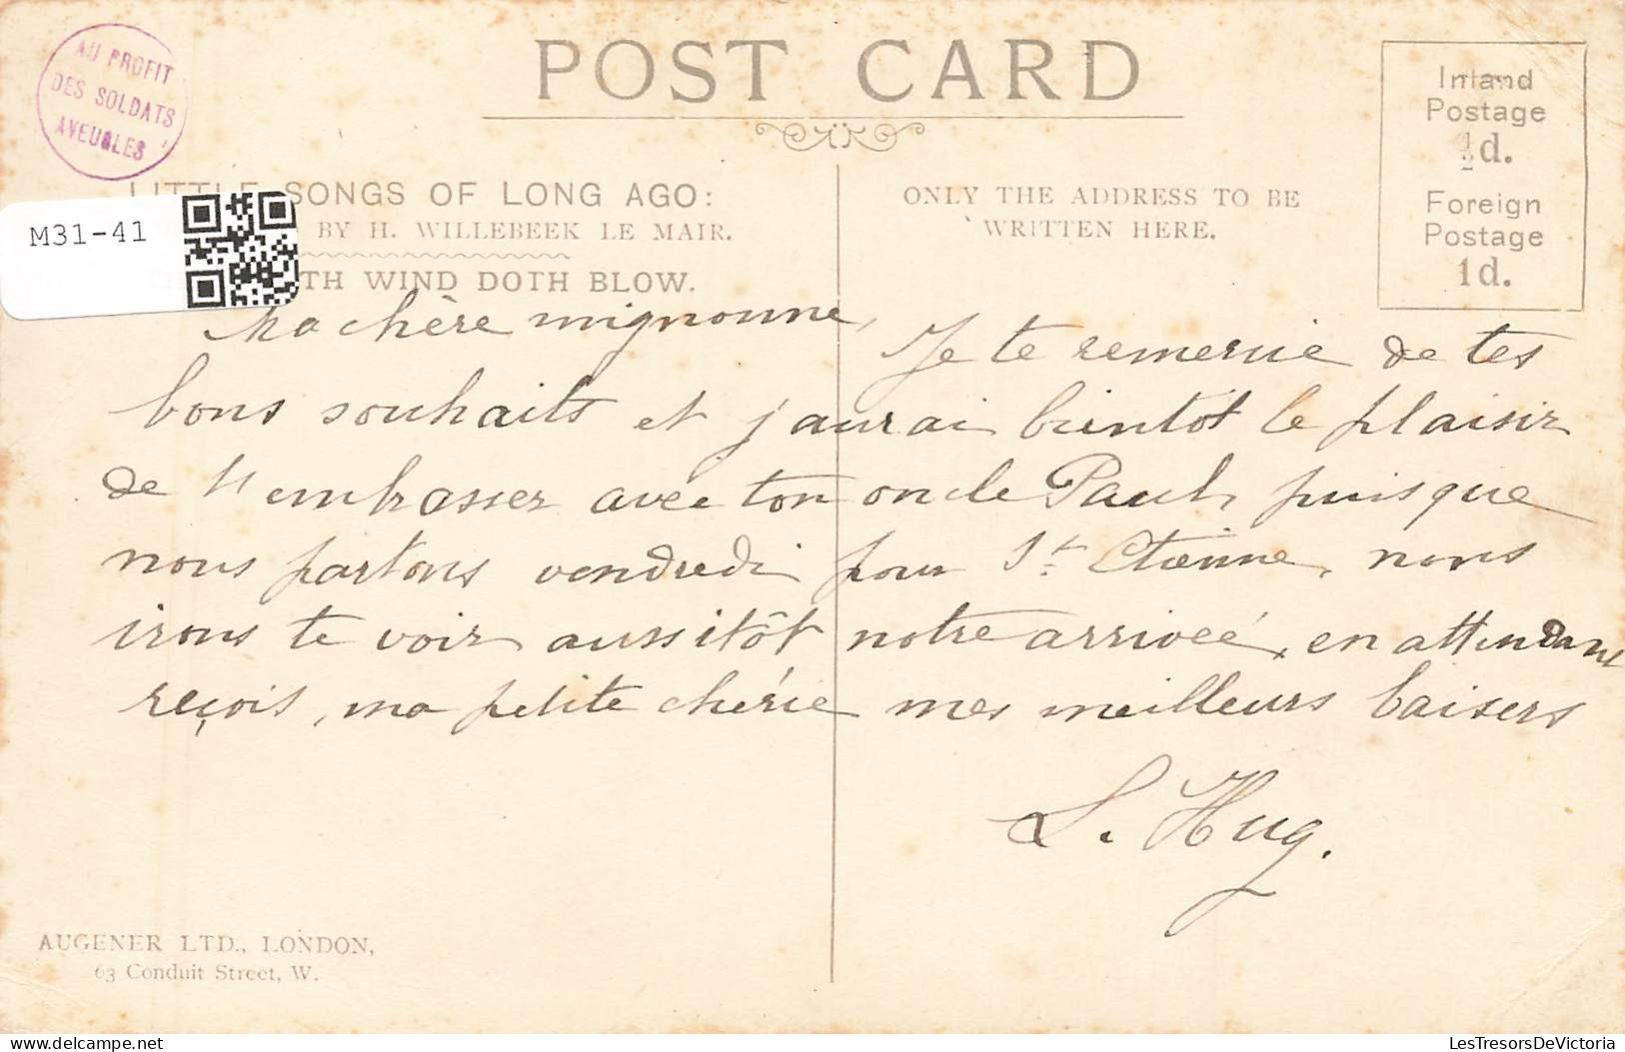 AU PROFIT
DES SOLDATS
AVEUGLES
POST CARD
Inland
Postage
½d.
Foreign
Postage
1d.
M31-41
LITTLE SONGS OF LONG AGO:
BY H. WILLEBEEK LE MAIR.
TH WIND DOTH BLOW.
ONLY THE ADDRESS TO BE
WRITTEN HERE.
Ma chère mignonne,
Je te remercie de tes
bons souhaits et j'aurai bientôt le plaisir
de t'embrasser avec ton oncle Paul, puisque
nous partons vendredi pour St. Etienne, nous
irons te voir aussitôt notre arrivée, en attendant
reçois, ma petite chérie mes meilleurs baisers
L. Hug.
AUGENER LTD., LONDON,
63 Conduit Street, W.
delcampe.net
LesTresorsDeVictoria